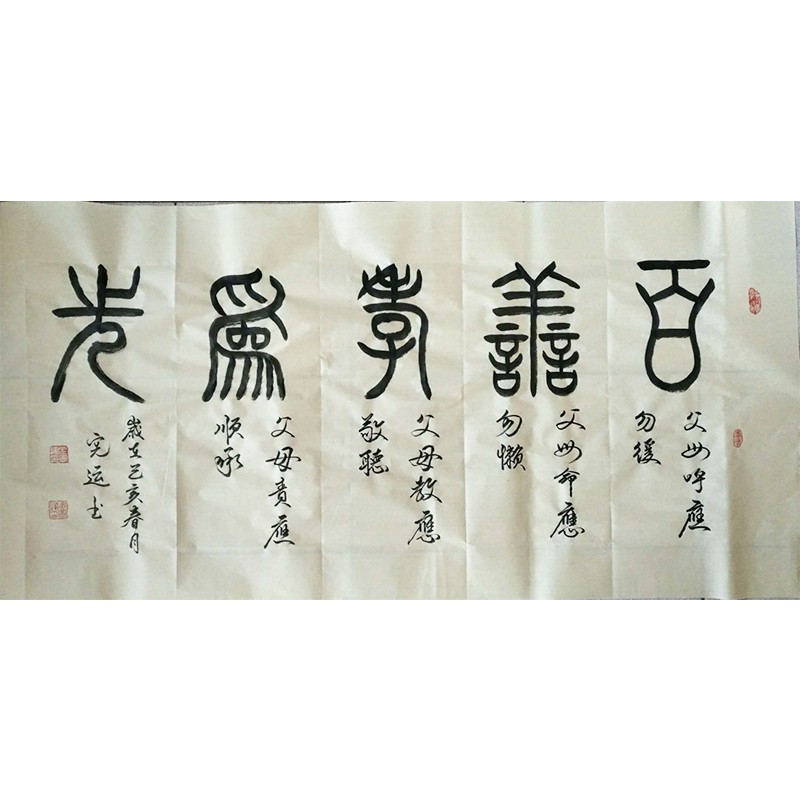 百善孝爲先
父母呼應
勿緩
父母命應
勿懶
父母教應
敬聽
父母責應
順承
歲在己亥春月
完运书